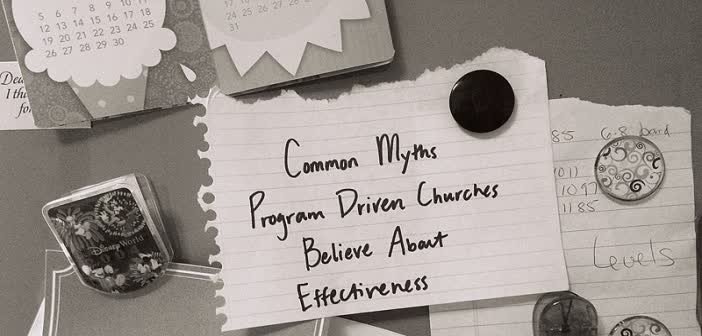 5 6 7 8 9 10 11
12 13 14 15 16 17 18
19 20 21 22 23 24 25
26 27 28 29 30
24 25 26 27 28 29 30
31
Dea
I tha
for
Common Myths
Program Driven Churches
Believe About
Effectiveness
Disney World
85 6-8 bard
1011
1097
1185
Levels